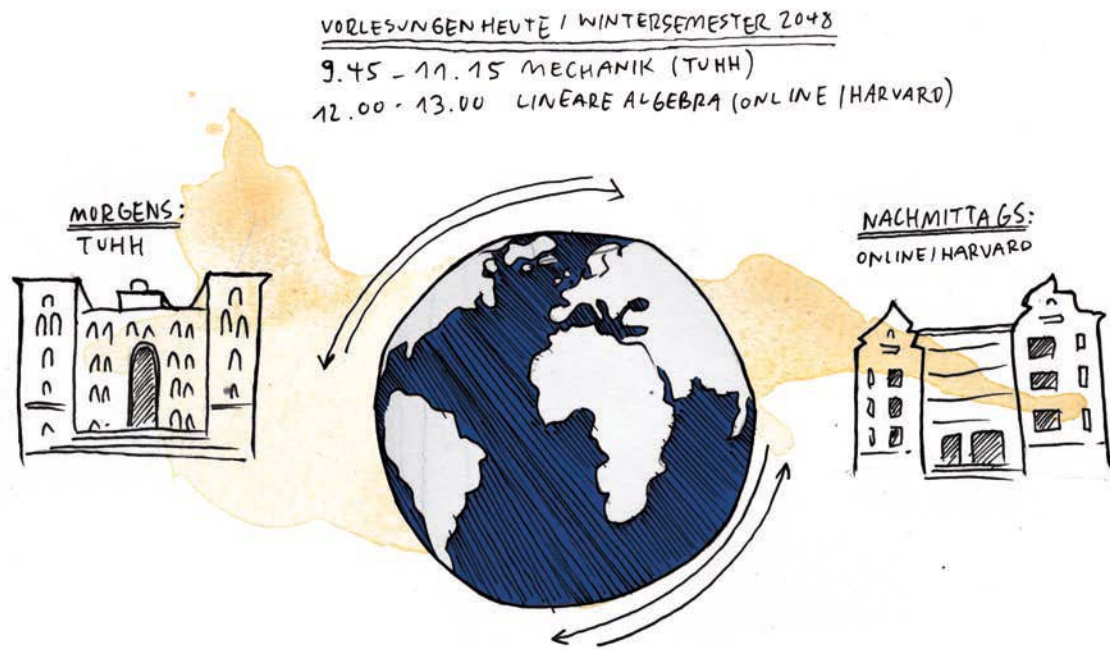 VORLESUNGEN HEUTE / WINTERSEMESTER 2048
9.45 - 11.15 MECHANIK (TUHH)
12.00 - 13.00 LINEARE ALGEBRA (ONLINE / HARVARD)
MORGENS:
TUHH
NACHMITTAGS:
ONLINE / HARVARD